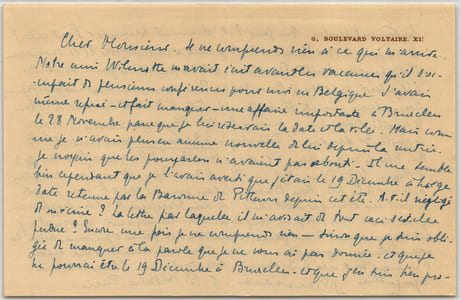 6, BOULEVARD VOLTAIRE. XI?
Cher Monsieur. Je ne comprends rien à ce qui m'arrive.
Notre ami Wilmotte m'avait écrit avant les vacances qu'il s'oc-
cupait de plusieurs conférences pour moi en Belgique. J'avais
même refusé - et fait manquer - une affaire importante à Bruxelles
le 28 Novembre parce que je lui réservais la date et la ville. Mais com-
me je n'avais plus eu aucune nouvelle de lui depuis la rentrée.
je croyais que les pourparlers n'avaient pas abouti. Il me semble
bien cependant que je l'avais averti que j'étais le 19 Décembre à Liège
date retenue par la Baronne de Pitteurs depuis cet été. A-t-il négligé
de m'écrire ? La lettre par laquelle il m'avisait de tout ceci s'est-elle
perdue ? Encore une fois je ne comprends rien - sinon que je suis obli-
gée de manquer à la parole que je ne vous ai pas donnée - et que je
ne pourrai être le 19 Décembre à Bruxelles - et que j'en suis bien pro-